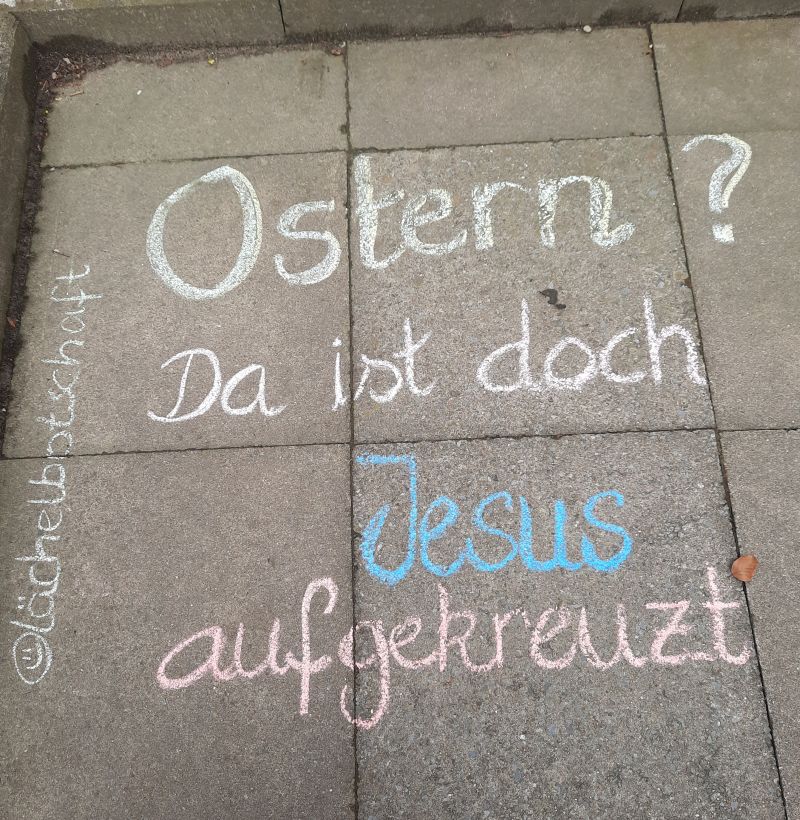 Ostern?
Da ist doch
Jesus
aufgekreuzt
@lächelbotschaft